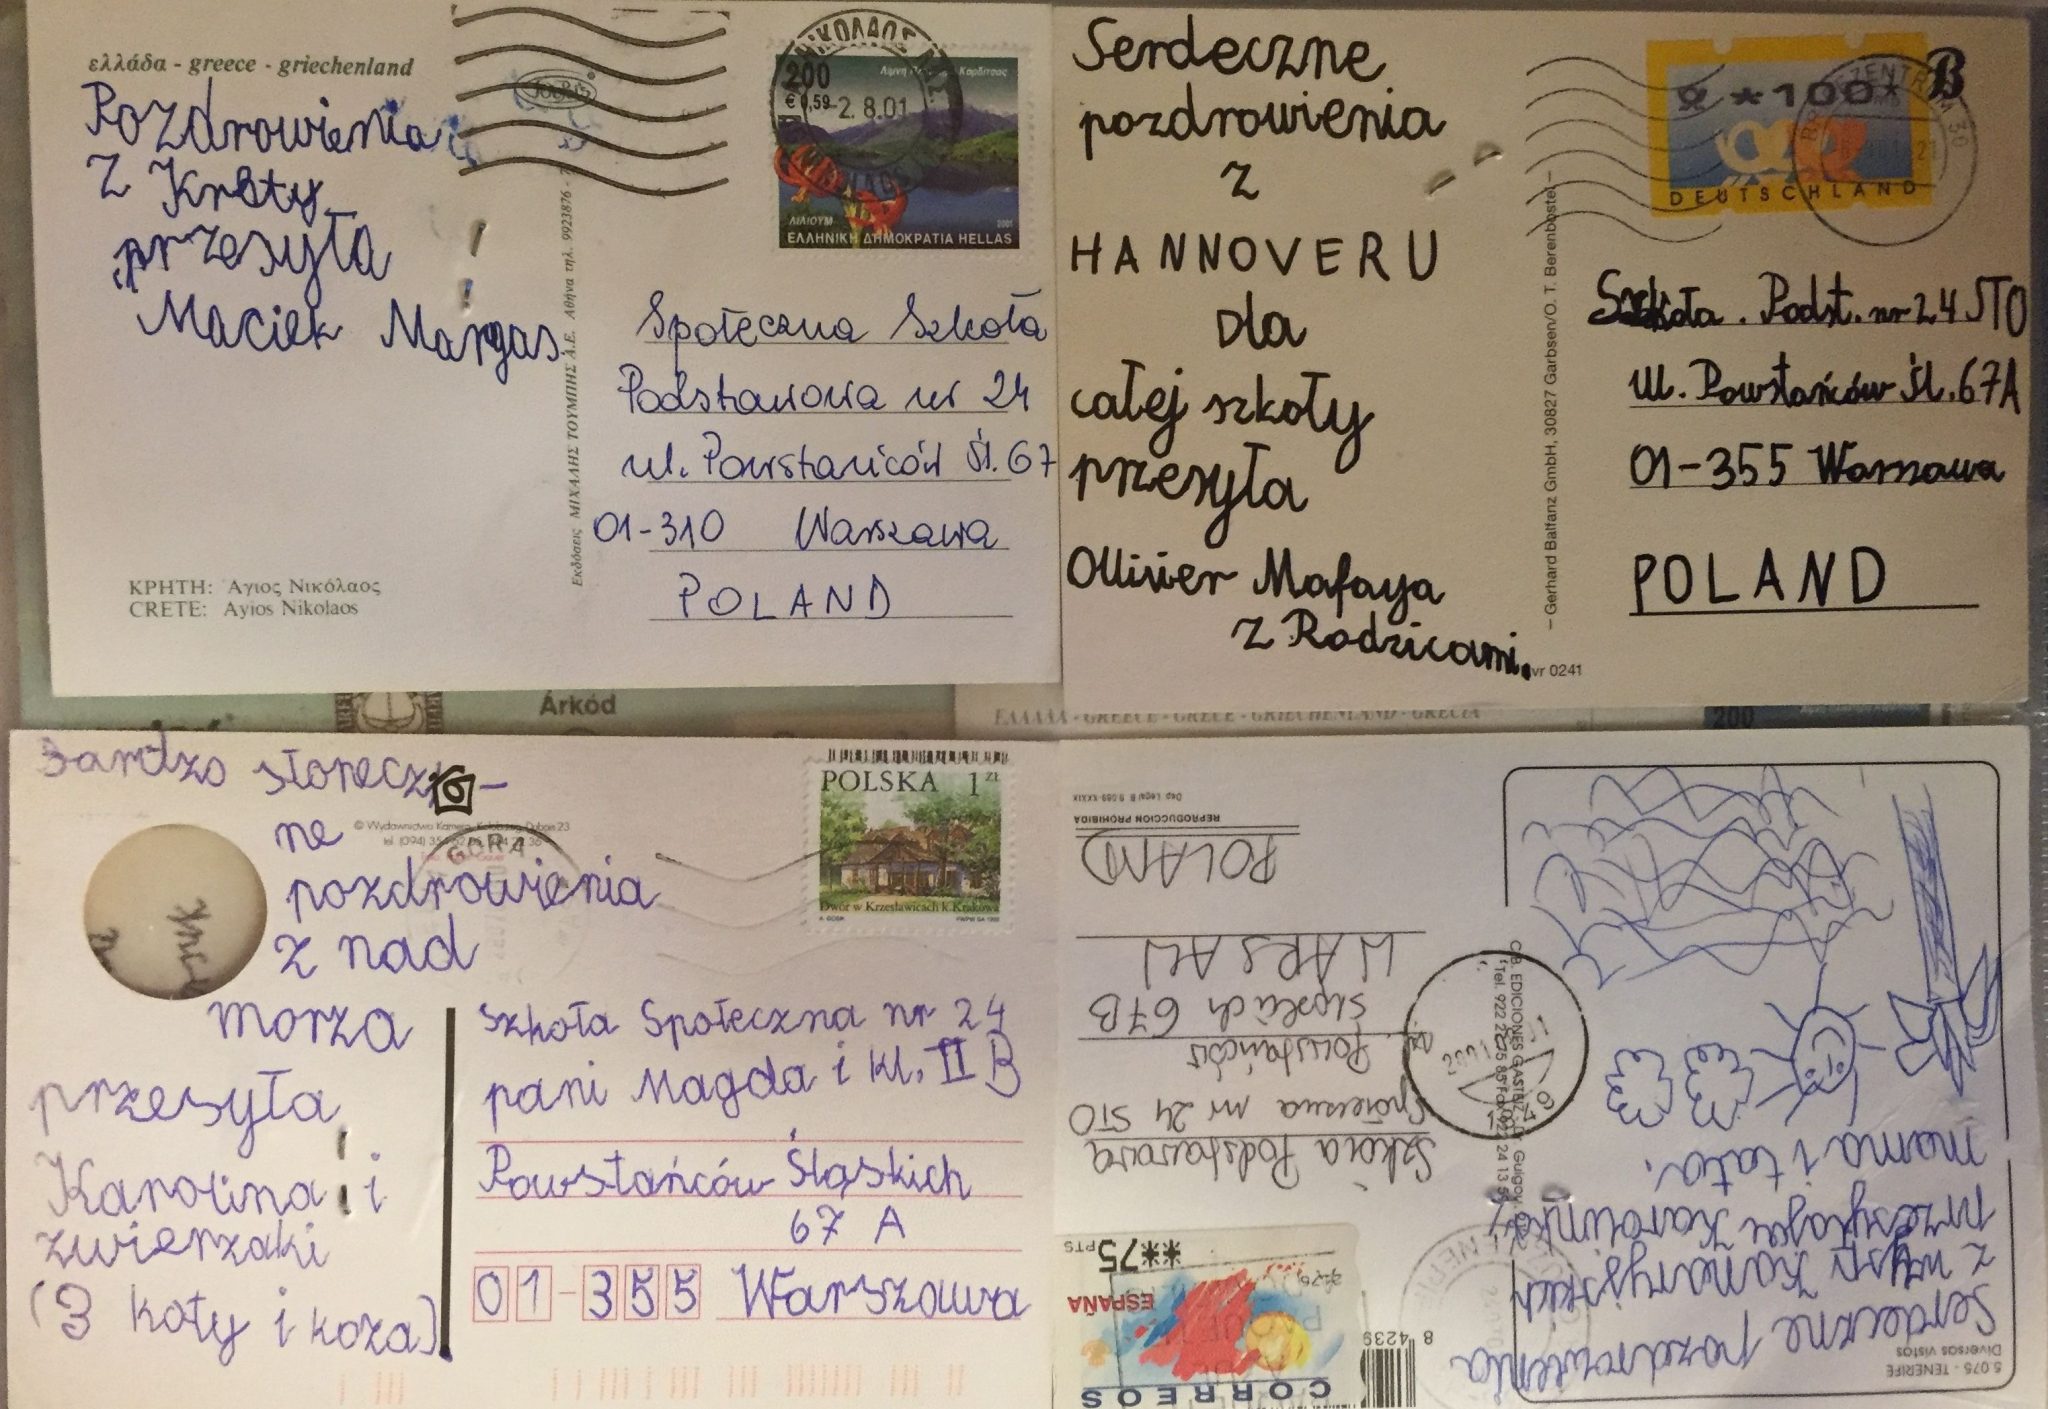 ελλάδα - greece - griechenland
Pozdrowienia
z Krety
przesyła
Maciek Margas
ΚΡΗΤΗ: Άγιος Νικόλαος
CRETE: Ayios Nikolaos
Εκδόσεις ΜΙΧΑΛΗΣ ΤΟΥΜΠΗΣ Α.Ε. Αθήνα τηλ. 9923876 -
200
€ 0,59
2.8.01
ΛΙΛΙΟΥΜ
2001
ΕΛΛΗΝΙΚΗ ΔΗΜΟΚΡΑΤΙΑ HELLAS
Społeczna Szkoła
Podstawowa nr 24
ul. Powstańców Śl. 67
01-310 Warszawa
POLAND
Serdeczne
pozdrowienia
z
HANNOVERU
dla
całej szkoły
przesyła
Ollivier Mafaya
z Rodzicami.
vr 0241
– Gerhard Balfanz GmbH, 30827 Garbsen/O. T. Berenbostel –
*100*
DEUTSCHLAND
B
BRIEFZENTRUM 30
Szkoła. Podst. nr 24 STO
ul. Powstańców Śl. 67A
01-355 Warszawa
POLAND
Árkód
ΕΛΛΑΔΑ - GREECE - GRECE - GRIECHENLAND - GRECIA
200
Bardzo słonecz-
ne
pozdrowienia
z nad
morza
przesyła
Karolina i
zwierzaki
(3 koty i koza)
© Wydawnictwo Kamera, Kołobrzeg, Dubois 23
GÓRA
POLSKA 1 zł
Dwór w Krzesławicach k. Krakowa
Szkoła Społeczna nr 24
pani Magda i kl. II B
Powstańców Śląskich
67 A
01-355 Warszawa
5.075 - TENERIFE
Diversas vistas
Serdeczne pozdrowienia
z wysp Kanaryjskich
przesyłają Karolinka,
mama i tata.
ESPAÑA
**75
PTS
CORREOS
8 4239
Szkoła Podstawowa
Społeczna nr 24 STO
ul. Powstańców
Śląskich 67B
WARSAW
POLAND
REPRODUCCION PROHIBIDA
Dep. Legal B. 9.089-XXXIX